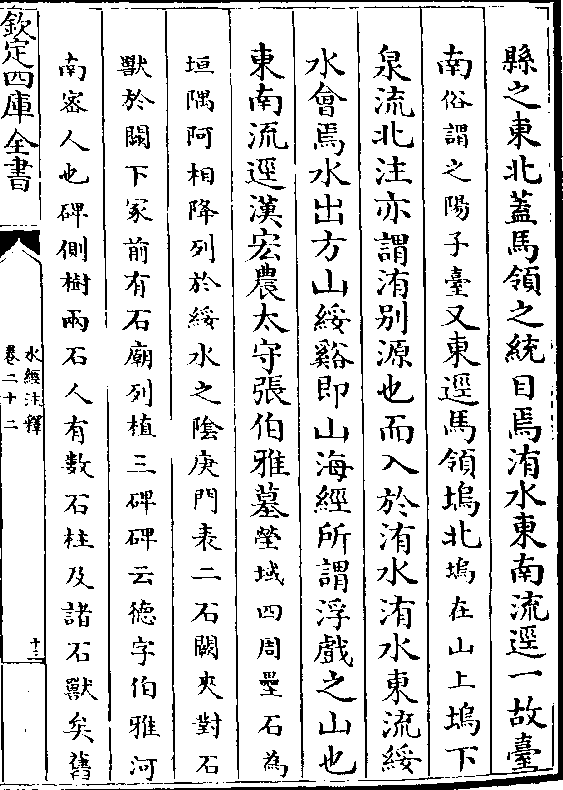 縣之東北蓋馬領之統目焉洧水東南流逕一故臺
南俗謂之陽子臺又東逕馬領塢北塢在山上塢下
泉流北注亦謂洧别源也而入於洧水洧水東流綏
水會焉水出方山綏谿即山海經所謂浮戲之山也
東南流逕漢宏農太守張伯雅墓塋域四周壘石為
垣隅阿相降列於綏水之陰庚門表二石闕夾對石
獸於闕下冢前有石廟列植三碑碑云德字伯雅河
南宻人也碑側樹兩石人有數石柱及諸石獸矣舊
欽定四庫全書
水經注釋
卷二十二
十三